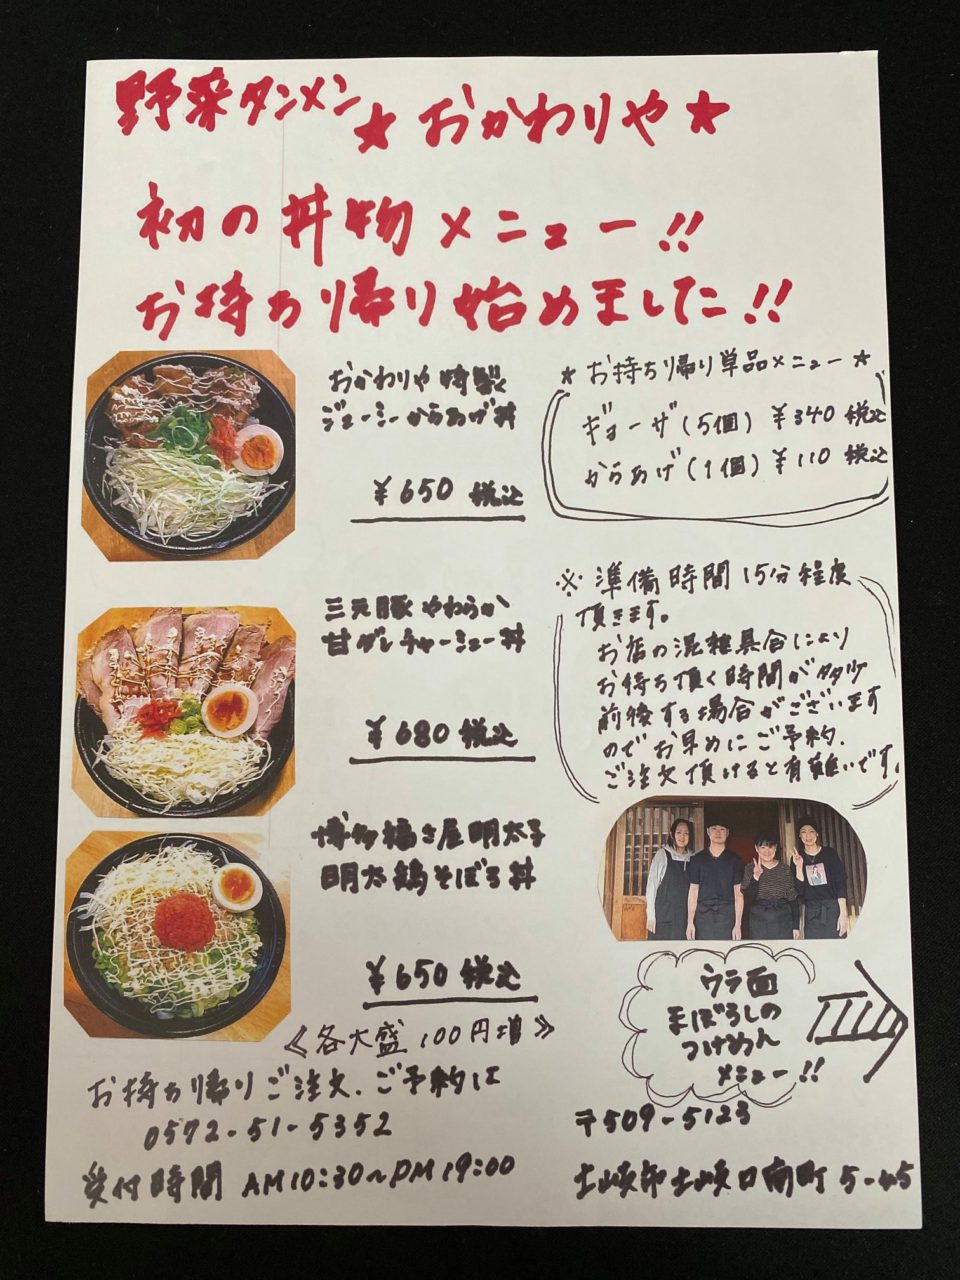 野菜タンメン ★おかわりや★
初の丼物メニュー!!
お持ち帰り始めました!!
おかわりや特製
ジューシーからあげ丼
¥650 税込
★お持ち帰り単品メニュー★
ギョーザ(5個) ¥340 税込
からあげ(1個) ¥110 税込
三元豚やわらか
甘ダレチャーシュー丼
¥680 税込
※準備時間15分程度
頂きます。
お店の混雑具合により
お待ち頂く時間が多少
前後する場合がございます
のでお早めにご予約、
ご注文頂けると有難いです。
博多福さ屋明太子
明太鶏そぼろ丼
¥650 税込
《各大盛100円増》
ウラ面
まぼろしの
つけめん
メニュー!!
お持ち帰りご注文、ご予約は
0572-51-5352
受付時間 AM10:30~PM19:00
〒509-5123
土岐郡土岐口南町5-45